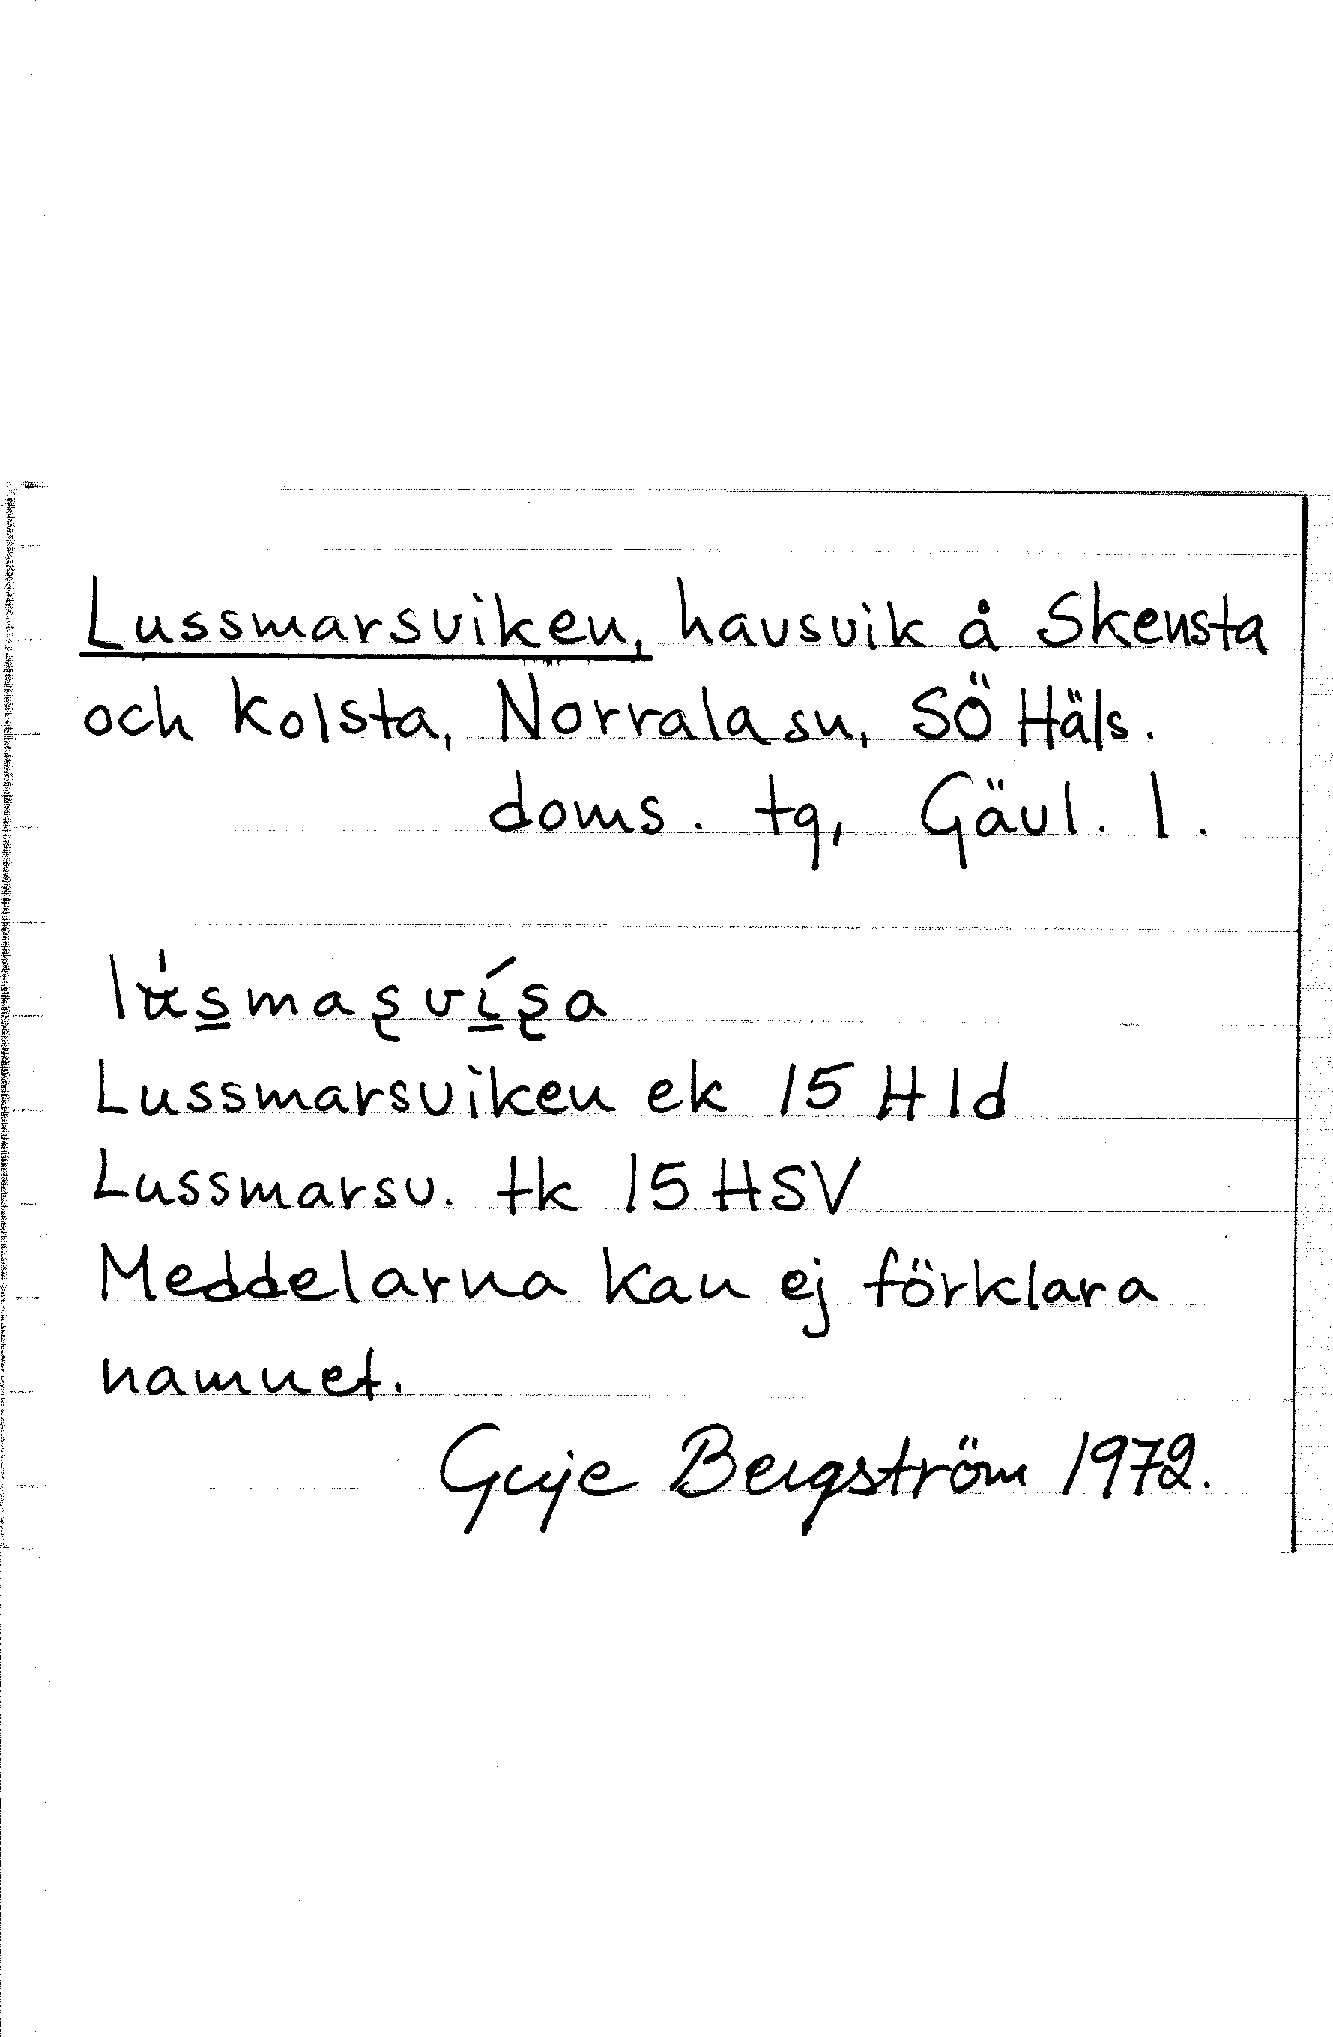 Lussmarsviken, havsvik å Skensta
och Kolsta, Norrala sn, SÖ Häls.
doms. tg, Gävl. l.
Lussmarsviken ek 15 H1d
Lussmarsv. tk 15 HSV
Meddelarna kan ej förklara
namnet.
Guje Bergström 1972.